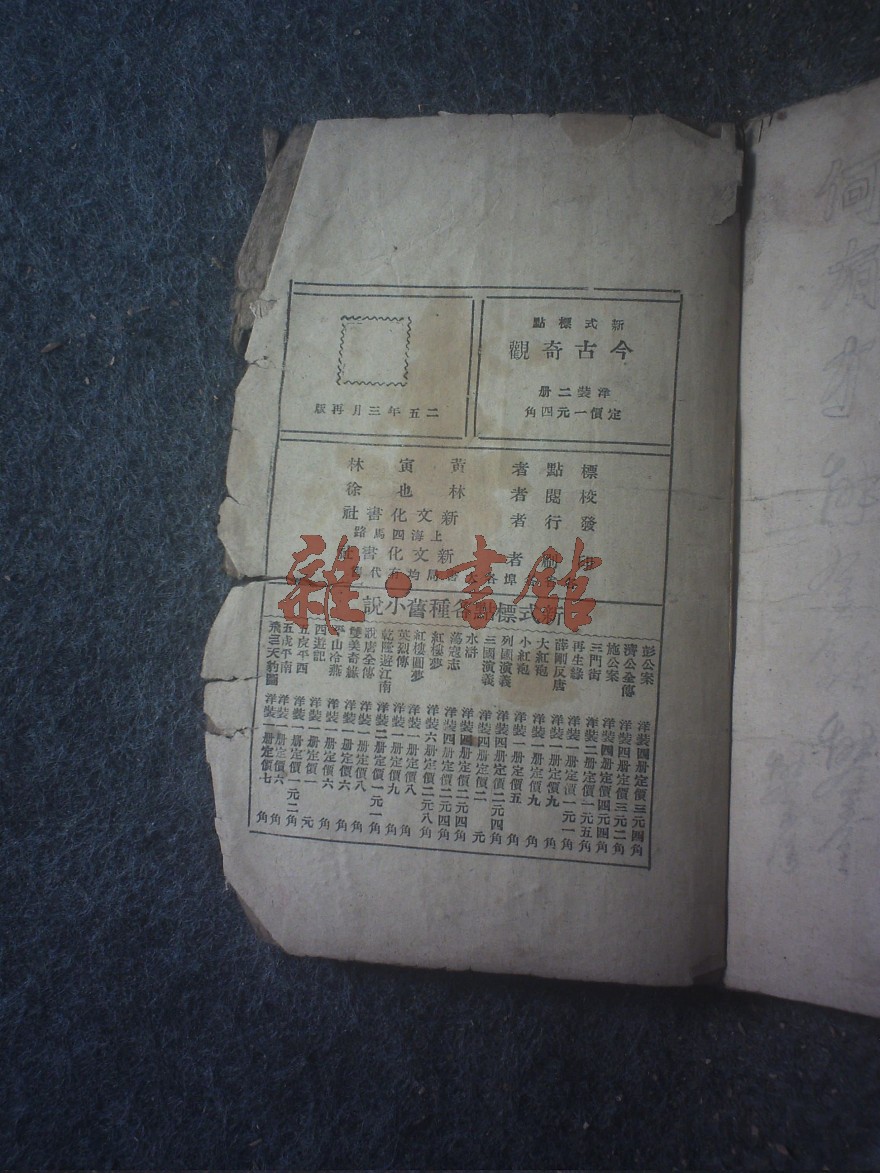 新式標點
今古奇觀
洋裝二册
定價一元四角
二五年三月再版
標點者 黃寅林
校閱者 林也徐
發行者 新文化書社
上海四馬路
印刷者 新文化書社
埠各大書局均有代
新式標點各種舊小說
彭公案 洋裝四册定價三元四角
濟公全傳 洋裝四册定價三元二角
施公案 洋裝四册定價四元四角
三門街 洋裝二册定價一元五角
再生緣 洋裝一册定價一元一角
薛剛反唐 洋裝一册定價九角
大紅袍 洋裝一册定價九角
小紅袍 洋裝一册定價五角
列國演義 洋裝四册定價二元四角
三國演義 洋裝四册定價二元
水滸 洋裝四册定價二元四角
蕩寇志 洋裝四册定價二元四角
紅樓夢 洋裝六册定價二元八角
紅樓圓夢 洋裝一册定價八角
英烈傳 洋裝一册定價九角
乾隆遊江南 洋裝二册定價一元一角
說唐全傳 洋裝一册定價八角
雙美奇緣 洋裝一册定價六角
平山冷燕 洋裝一册定價六角
西遊記 洋裝一册定價一元
五虎平西 洋裝一册定價一元二角
五虎平南 洋裝一册定價六角
飛三天豹圖 洋裝一册定價七角
雜·書館
何有